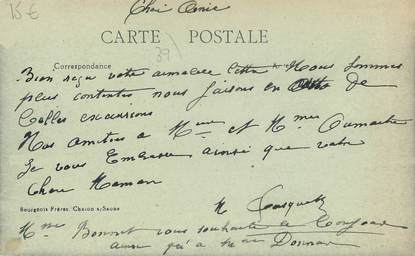 15 €
Cher Amie
CARTE POSTALE
39
Correspondance
Bien reçu votre aimable lettre Nous sommes
plus contentes nous faisons en de
belles excursions
Nos amities a Mme et Mme
Je vous Embrasse ainsi que votre
Chere Maman
M
Bourgeois Frères, Chalon s/Saone
Mme Bonnet vous souhaite le bonjour
ainsi a